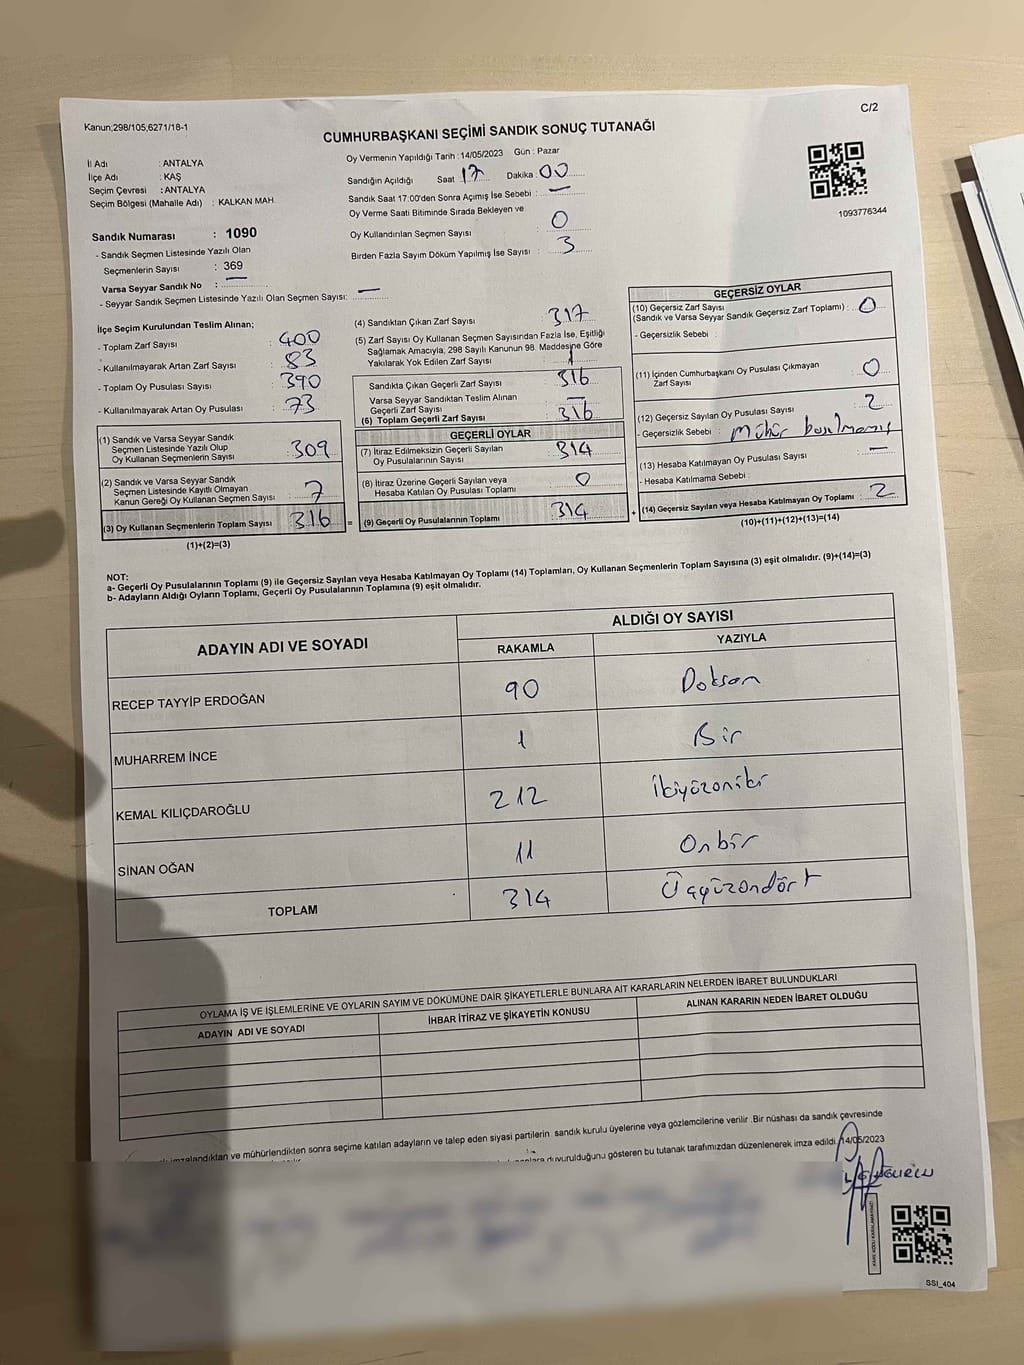 Kanun;298/105;6271/18-1
C/2
CUMHURBAŞKANI SEÇİMİ SANDIK SONUÇ TUTANAĞI
İl Adı : ANTALYA
İlçe Adı : KAŞ
Seçim Çevresi : ANTALYA
Seçim Bölgesi (Mahalle Adı) : KALKAN MAH.
Sandık Numarası : 1090
- Sandık Seçmen Listesinde Yazılı Olan
Seçmenlerin Sayısı : 369
Varsa Seyyar Sandık No : —
- Seyyar Sandık Seçmen Listesinde Yazılı Olan Seçmen Sayısı: —
Oy Vermenin Yapıldığı Tarih : 14/05/2023 Gün : Pazar
Sandığın Açıldığı Saat 17 Dakika : 00
Sandık Saat 17:00'den Sonra Açımış İse Sebebi : —
Oy Verme Saati Bitiminde Sırada Bekleyen ve
Oy Kullandırılan Seçmen Sayısı : 0
Birden Fazla Sayım Döküm Yapılmış İse Sayısı : 3
1093776344
İlçe Seçim Kurulundan Teslim Alınan;
- Toplam Zarf Sayısı : 400
- Kullanılmayarak Artan Zarf Sayısı : 83
- Toplam Oy Pusulası Sayısı : 390
- Kullanılmayarak Artan Oy Pusulası : 73
(1) Sandık ve Varsa Seyyar Sandık
Seçmen Listesinde Yazılı Olup
Oy Kullanan Seçmenlerin Sayısı : 309
(2) Sandık ve Varsa Seyyar Sandık
Seçmen Listesinde Kayıtlı Olmayan
Kanun Gereği Oy Kullanan Seçmen Sayısı : 7
(3) Oy Kullanan Seçmenlerin Toplam Sayısı 316 =
(1)+(2)=(3)
(4) Sandıktan Çıkan Zarf Sayısı 317
(5) Zarf Sayısı Oy Kullanan Seçmen Sayısından Fazla İse, Eşitliği
Sağlamak Amacıyla; 298 Sayılı Kanunun 98. Maddesine Göre
Yakılarak Yok Edilen Zarf Sayısı 1
Sandıkta Çıkan Geçerli Zarf Sayısı 316
Varsa Seyyar Sandıktan Teslim Alınan
Geçerli Zarf Sayısı —
(6) Toplam Geçerli Zarf Sayısı 316
GEÇERLİ OYLAR
(7) İtiraz Edilmeksizin Geçerli Sayılan
Oy Pusulalarının Sayısı : 314
(8) İtiraz Üzerine Geçerli Sayılan veya
Hesaba Katılan Oy Pusulası Toplamı : 0
(9) Geçerli Oy Pusulalarının Toplamı 314 +
GEÇERSİZ OYLAR
(10) Geçersiz Zarf Sayısı
(Sandık ve Varsa Seyyar Sandık Geçersiz Zarf Toplamı) : 0
- Geçersizlik Sebebi :
(11) İçinden Cumhurbaşkanı Oy Pusulası Çıkmayan
Zarf Sayısı 0
(12) Geçersiz Sayılan Oy Pusulası Sayısı 2
- Geçersizlik Sebebi : Mühür basılmamış
(13) Hesaba Katılmayan Oy Pusulası Sayısı —
- Hesaba Katılmama Sebebi :
(14) Geçersiz Sayılan veya Hesaba Katılmayan Oy Toplamı : 2
(10)+(11)+(12)+(13)=(14)
NOT:
a- Geçerli Oy Pusulalarının Toplamı (9) ile Geçersiz Sayılan veya Hesaba Katılmayan Oy Toplamı (14) Toplamları, Oy Kullanan Seçmenlerin Toplam Sayısına (3) eşit olmalıdır. (9)+(14)=(3)
b- Adayların Aldığı Oyların Toplamı, Geçerli Oy Pusulalarının Toplamına (9) eşit olmalıdır.
ADAYIN ADI VE SOYADI ALDIĞI OY SAYISI
RAKAMLA YAZIYLA
RECEP TAYYİP ERDOĞAN 90 Doksan
MUHARREM İNCE 1 Bir
KEMAL KILIÇDAROĞLU 212 İkiyüzoniki
SİNAN OĞAN 11 Onbir
TOPLAM 314 Üçyüzondört
OYLAMA İŞ VE İŞLEMLERİNE VE OYLARIN SAYIM VE DÖKÜMÜNE DAİR ŞİKAYETLERLE BUNLARA AİT KARARLARIN NELERDEN İBARET BULUNDUKLARI
ADAYIN ADI VE SOYADI İHBAR İTİRAZ VE ŞİKAYETİN KONUSU ALINAN KARARIN NEDEN İBARET OLDUĞU
imzalandıktan ve mühürlendikten sonra seçime katılan adayların ve talep eden siyasi partilerin sandık kurulu üyelerine veya gözlemcilerine verilir. Bir nüshası da sandık çevresinde
duyurulduğunu gösteren bu tutanak tarafımızdan düzenlenerek imza edildi. 14/05/2023
SSI_404